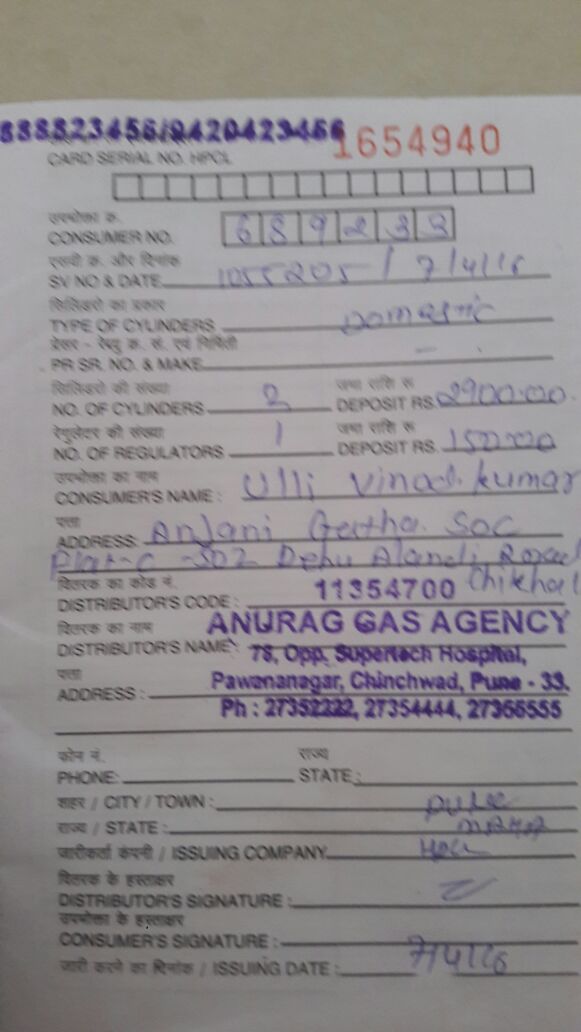 888823456/9420423456
1654940
CARD SERIAL NO. HPCL
उपभोक्ता क.
CONSUMER NO. 689233
एसवी क. और दिनांक
SV NO & DATE 1055205 / 7/4/16
सिलिंडरो का प्रकार
TYPE OF CYLINDERS Domastic
प्रेसर - रेग्यु क. सं. एवं निर्मिती
PR SR. NO. & MAKE - .
सिलिंडरो की संख्या जमा राशि रू
NO. OF CYLINDERS 2 DEPOSIT RS. 2900.00.
रेगुलेटर की संख्या जमा राशि रू
NO. OF REGULATORS 1 DEPOSIT RS. 150.00
उपभोक्ता का नाम
CONSUMER'S NAME : Ulli Vinod. kumar
पता
ADDRESS: Anjani Geetha. Soc
Flat-C -302 Dehu Alandi Road
Chikhali
वितरक का कोड नं.
DISTRIBUTOR'S CODE : 11354700
वितरक का नाम ANURAG GAS AGENCY
DISTRIBUTOR'S NAME: 78, Opp. Supertech Hospital,
पता Pawananagar, Chinchwad, Pune - 33.
ADDRESS : Ph : 27352222, 27354444, 27365555
फोन नं. राज्य
PHONE: STATE :
शहर / CITY / TOWN : pune
राज्य / STATE : MAHA
जारीकर्ता कंपनी / ISSUING COMPANY HPCL
वितरक के हस्ताक्षर
DISTRIBUTOR'S SIGNATURE :
उपभोक्ता के हस्ताक्षर
CONSUMER'S SIGNATURE :
जारी करने का दिनांक / ISSUING DATE : 7/4/16